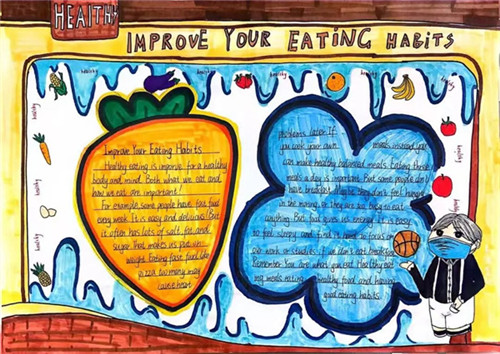 HEALTHY
IMPROVE YOUR EATING HABITS
healthy
healthy
healthy
healthy
healthy
healthy
healthy
healthy
Improve Your Eating Habits
Healthy eating is for a healthy
body and mind. Both what we eat and
how we eat are important!
For example, some people have fast food
every week. It is easy and delicious. But
it often has lots of salt, fat and
sugar. That makes us put on
weight. Eating fast food
too many may
cause heart
problems later. If
you cook your own meals instead, you
can make healthy balanced meals. Eating three
meals a day is important. But some people don't
have breakfast. Maybe they don't feel hungry
in the morning, or they are too busy to eat
anything. But food gives us energy. It is easy
to feel sleepy and tired. It is hard to focus on
our work or studies if we don't eat breakfast.
Remember: You are what you eat. Healthy eat
ing means eating healthy food and having
good eating habits.